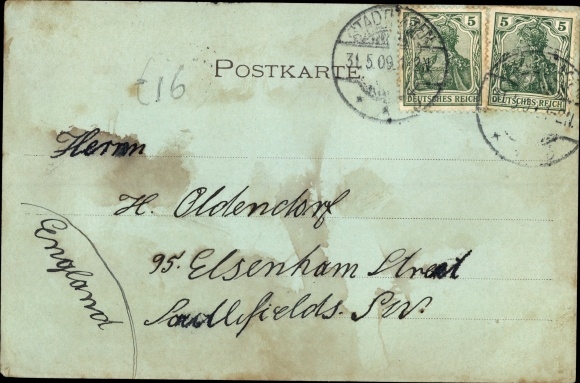 5 5
STADTHAGEN
31.5.09
DEUTSCHES REICH DEUTSCHES REICH
POSTKARTE
£16
Herrn
H. Oldendorf
95. Elsenham Street
Southfields. SW.
England